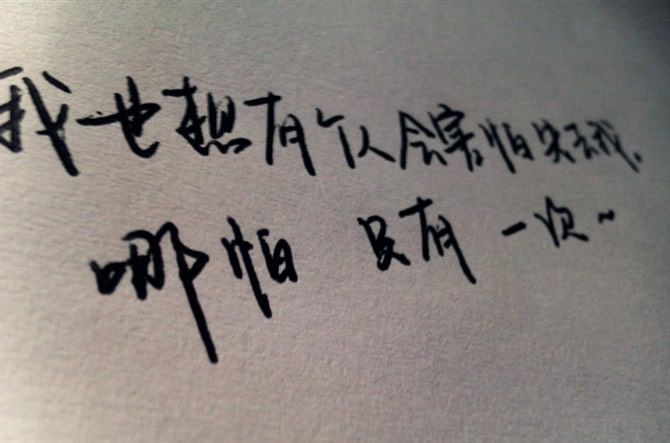 我也想有个人会害怕失去我.
哪怕 只有一次~